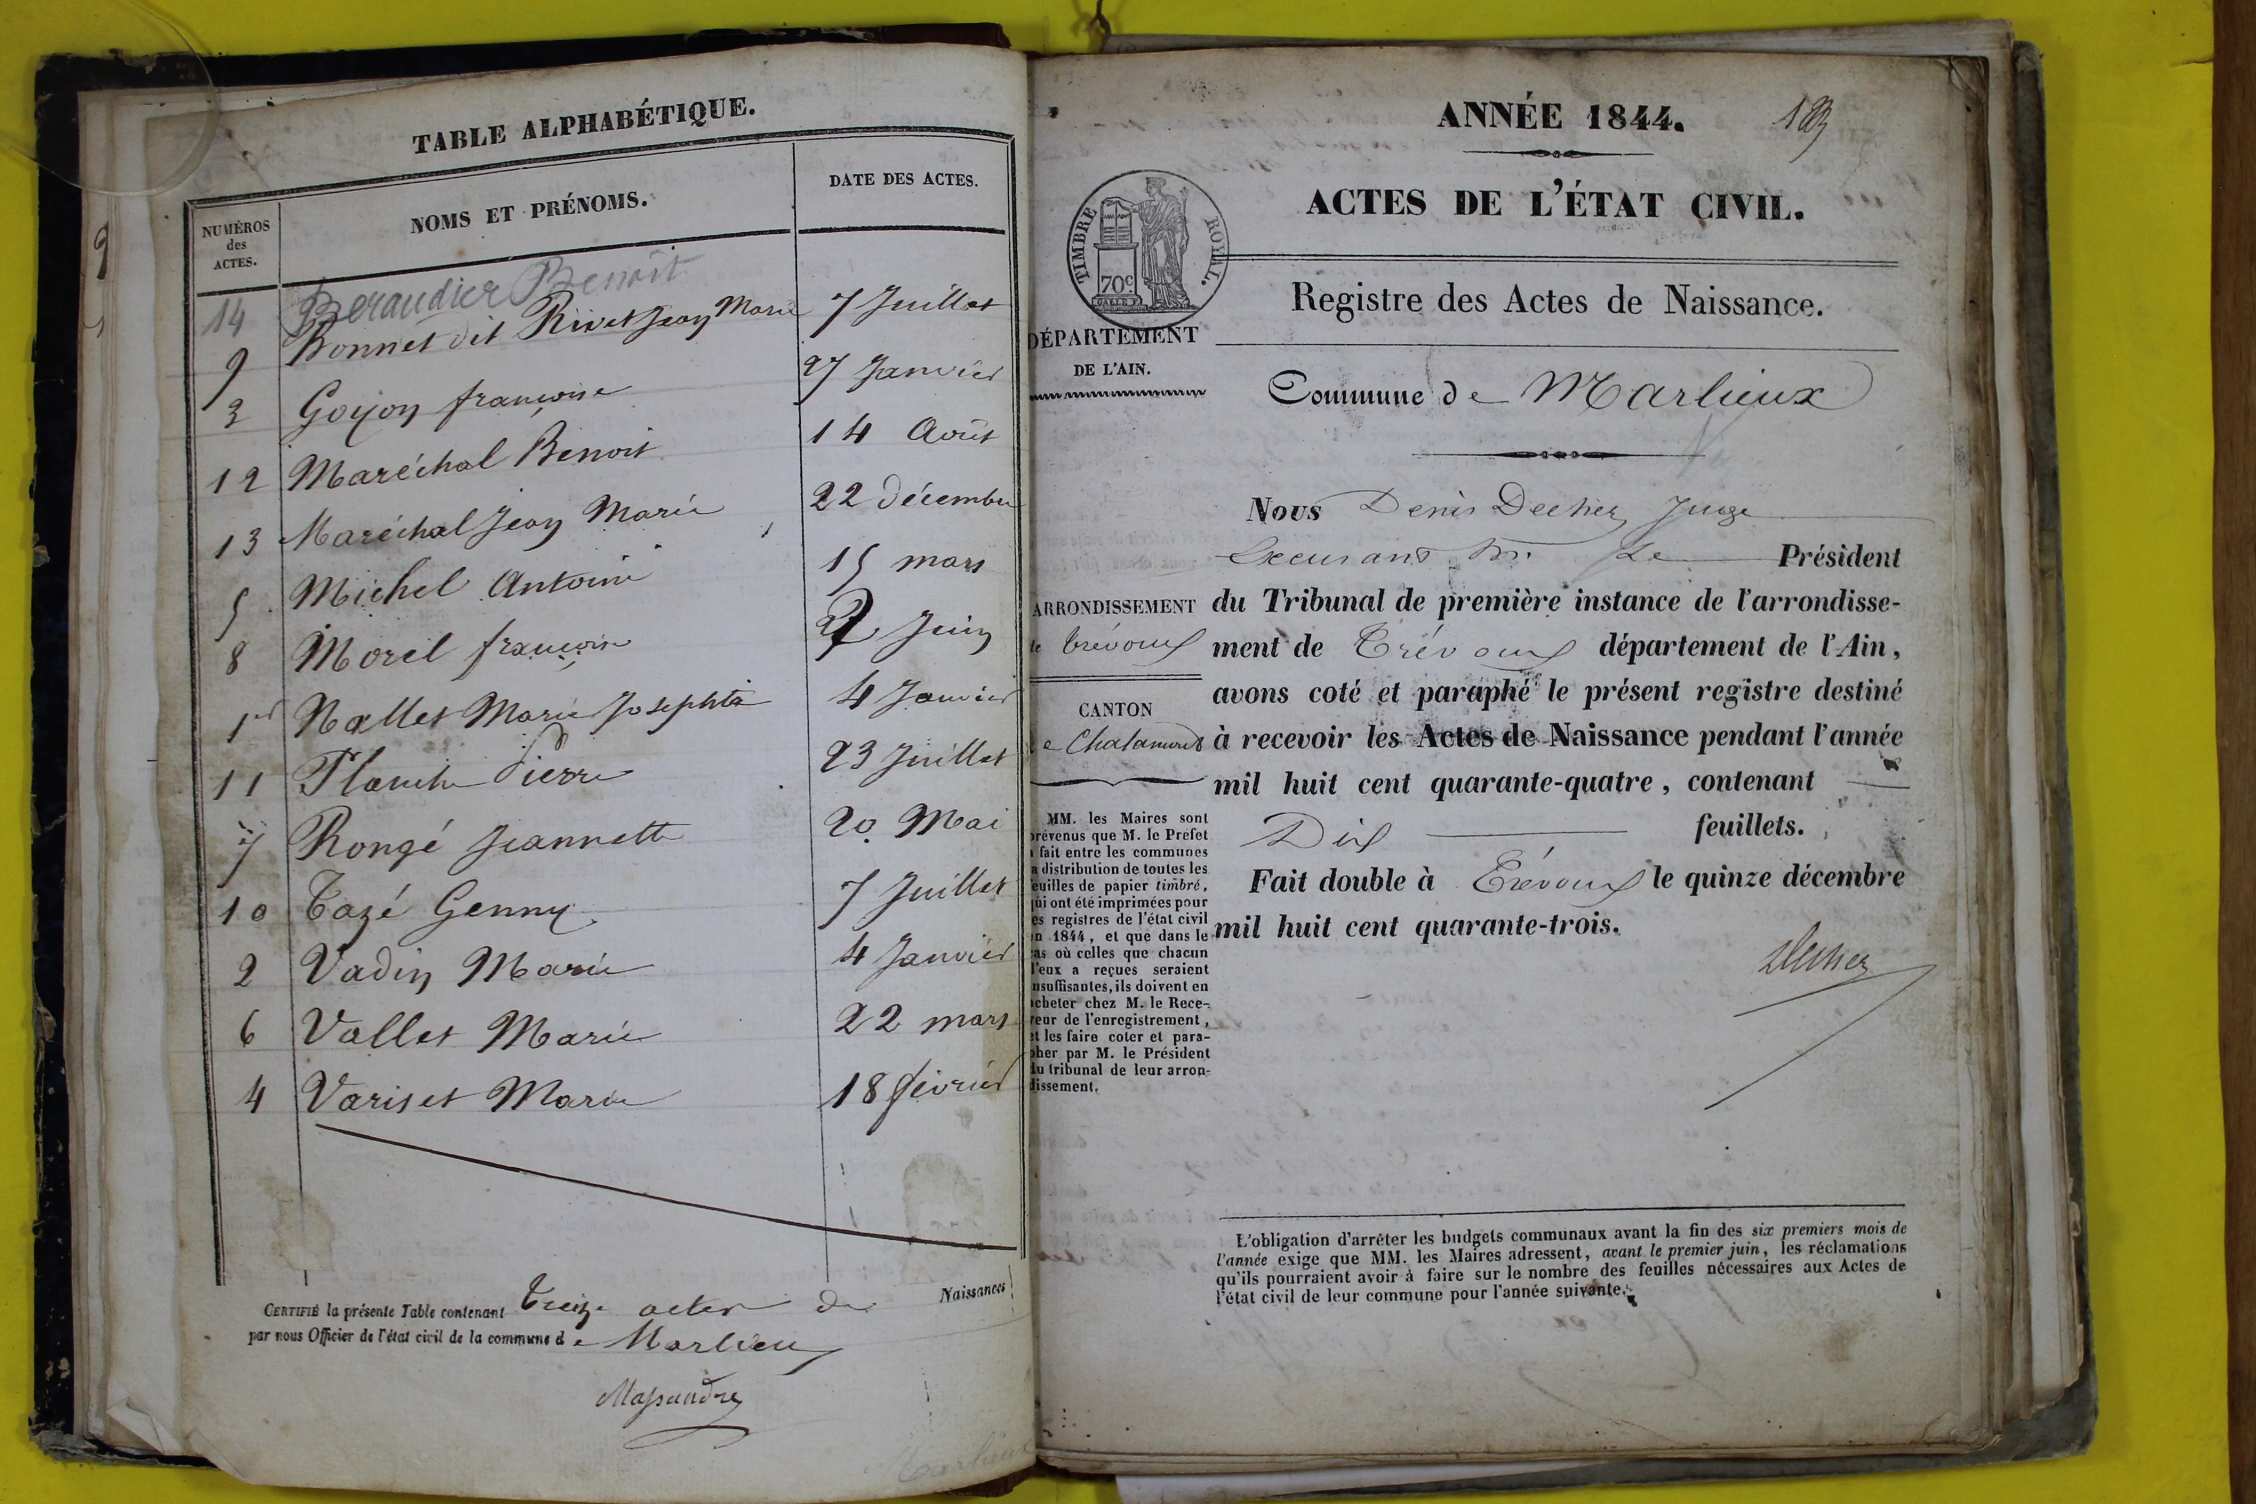 TABLE ALPHABÉTIQUE.
NUMÉROS des ACTES. NOMS ET PRÉNOMS. DATE DES ACTES.
14 Beraudier Benoit
9 Bonnet dit Rivet Jean Marie 7 Juillet
3 Goyon françoise 27 Janvier
12 Maréchal Benoit 14 Août
13 Maréchal Jean Marie 22 décembre
5 Michel Antoine 15 mars
8 Morel françoise 2 Juin
1er Nallet Marie Josephte 4 Janvier
11 Planche Pierre 23 Juillet
7 Rongé Jeannette 20 Mai
10 Tazé Genny 7 Juillet
2 Vadin Marie 4 Janvier
6 Vallet Marie 22 mars
4 Variset Marie 18 février
CERTIFIÉ la présente Table contenant Treize actes de Naissances
par nous Officier de l'état civil de la commune de Marlieux
Marlieux
ANNÉE 1844.
ACTES DE L'ÉTAT CIVIL.
TIMBRE ROYAL.
70c.
Registre des Actes de Naissance.
DÉPARTEMENT
DE L'AIN.
Commune de Marlieux
Nous Denis Decher Juge
Le Président
ARRONDISSEMENT
de Trévoux
CANTON
de Chalamont
du Tribunal de première instance de l'arrondisse-
ment de Trévoux département de l'Ain,
avons coté et paraphé le présent registre destiné
à recevoir les Actes de Naissance pendant l'année
mil huit cent quarante-quatre, contenant
Dix feuillets.
Fait double à Trévoux le quinze décembre
mil huit cent quarante-trois.
Decher
MM. les Maires sont
prévenus que M. le Préfet
a fait entre les communes
la distribution de toutes les
feuilles de papier timbré,
qui ont été imprimées pour
les registres de l'état civil
en 1844, et que dans le
cas où celles que chacun
d'eux a reçues seraient
insuffisantes, ils doivent en
acheter chez M. le Rece-
veur de l'enregistrement,
et les faire coter et para-
pher par M. le Président
du tribunal de leur arron-
dissement.
L'obligation d'arrêter les budgets communaux avant la fin des six premiers mois de
l'année exige que MM. les Maires adressent, avant le premier juin, les réclamations
qu'ils pourraient avoir à faire sur le nombre des feuilles nécessaires aux Actes de
l'état civil de leur commune pour l'année suivante.